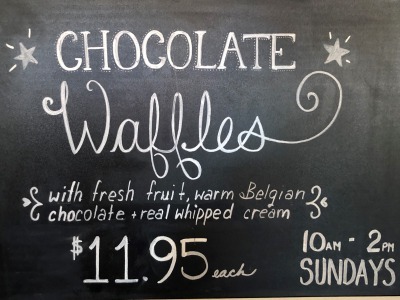 CHOCOLATE
Waffles
with fresh fruit, warm Belgian
chocolate + real whipped cream
$11.95 each
10AM - 2PM
SUNDAYS